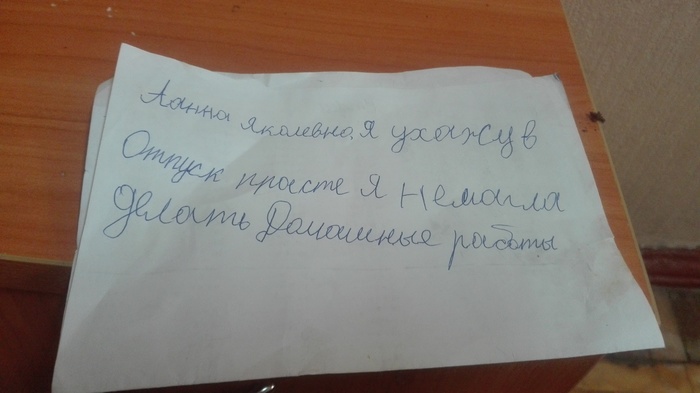 Аанна яколевно. Я ухажу в
Отпуск прасте я немагла
делать Домашные работы